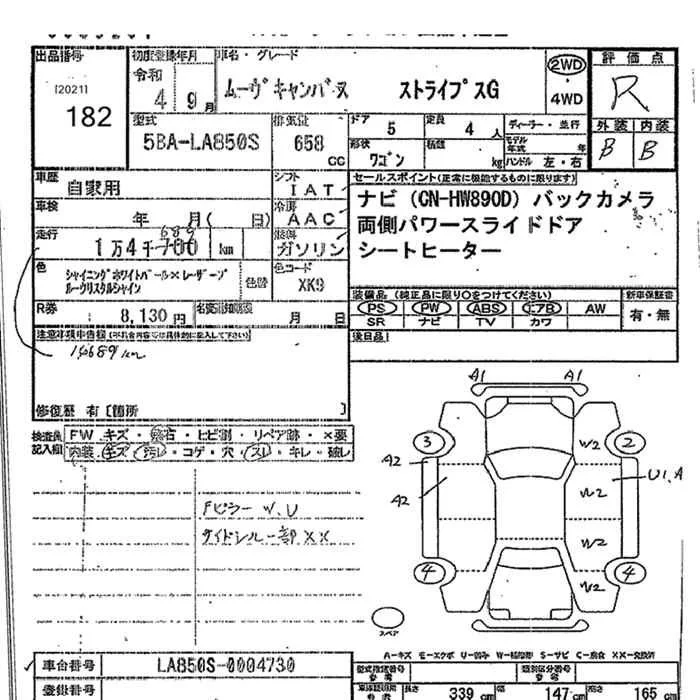 出品番号 初度登録年月 車名・グレード 評価点
[2021] 令和 2WD
182 4年 9月 ムーヴキャンバス ストライプスG ・ 4WD R
型式 排気量 ドア 5 定員 4人 ディーラー・並行 外装 内装
5BA-LA850S 658 CC 形状 ワゴン 積載 kg モデル年式 年 ハンドル 左・右 B B
車歴 自家用 シフト IAT セールスポイント(正常に機能するものに限ります)
車検 年 月( 日) 冷房 AAC ナビ(CN-HW890D)バックカメラ
走行 1万4千700 689 km 燃料 ガソリン 両側パワースライドドア
シートヒーター
色 シャイニングホワイトパール×レーザーブ
ルークリスタルシャイン 色替 色コード XK9
装備品(純正品に限り○をつけてください) 新車保証書
PS PW ABS エアB AW 有・無
SR ナビ TV カワ
R券 8,130円 名変期限 月 日
後日品
注意事項申告欄(不具合内容等は具体的に記入して下さい)
14689km
修復歴 有〔箇所 〕
検査員記入欄 FW キズ・飛石・ヒビ割・リペア跡・×要
内装 キズ・汚レ・コゲ・穴・スレ・キレ・破レ
Fピラー W、U
サイドシル一部 XX
A1 A1
3 W2 2
A2 U1、A
A2 W2
W2
4 W2 4
スペア
A-キズ E-エクボ U-凹み W-補修跡 S-サビ C-腐食 XX-交換済
車台番号 LA850S-0004730
型式指定番号 類別区分番号
登録番号 長さ 339 cm 幅 147 cm 高さ 165 cm